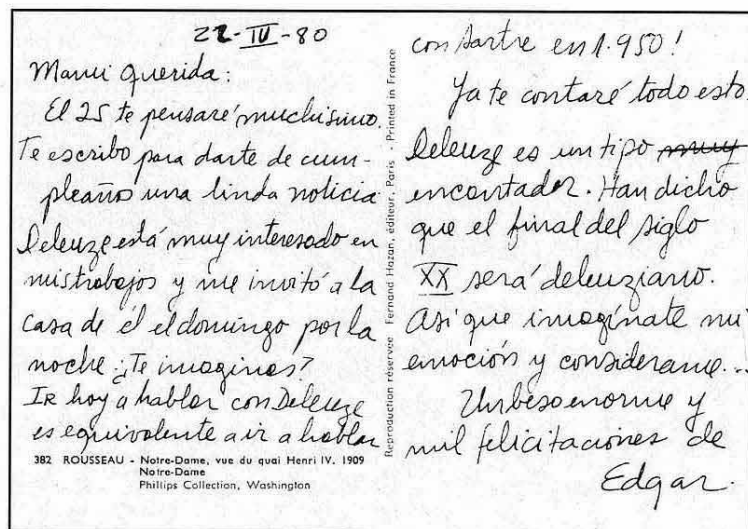 22-IV-80
Mami querida:
El 25 te pensaré muchísimo.
Te escribo para darte de cum-
pleaños una linda noticia
Deleuze está muy interesado en
mis trabajos y me invitó a la
casa de él el domingo por la
noche ¿Te imaginas?
IR hoy a hablar con Deleuze
es equivalente a ir a hablar
382 ROUSSEAU - Notre-Dame, vue du quai Henri IV. 1909
Notre-Dame
Phillips Collection, Washington
Reproduction réservée Fernand Hazan, éditeur, Paris - Printed in France
con Sartre en 1.950!
Ya te contaré todo esto.
Deleuze es un tipo muy
encantador. Han dicho
que el final del siglo
XX será deleuziano.
Así que imagínate mi
emoción y considerame...
Un beso enorme y
mil felicitaciones de
Edgar.